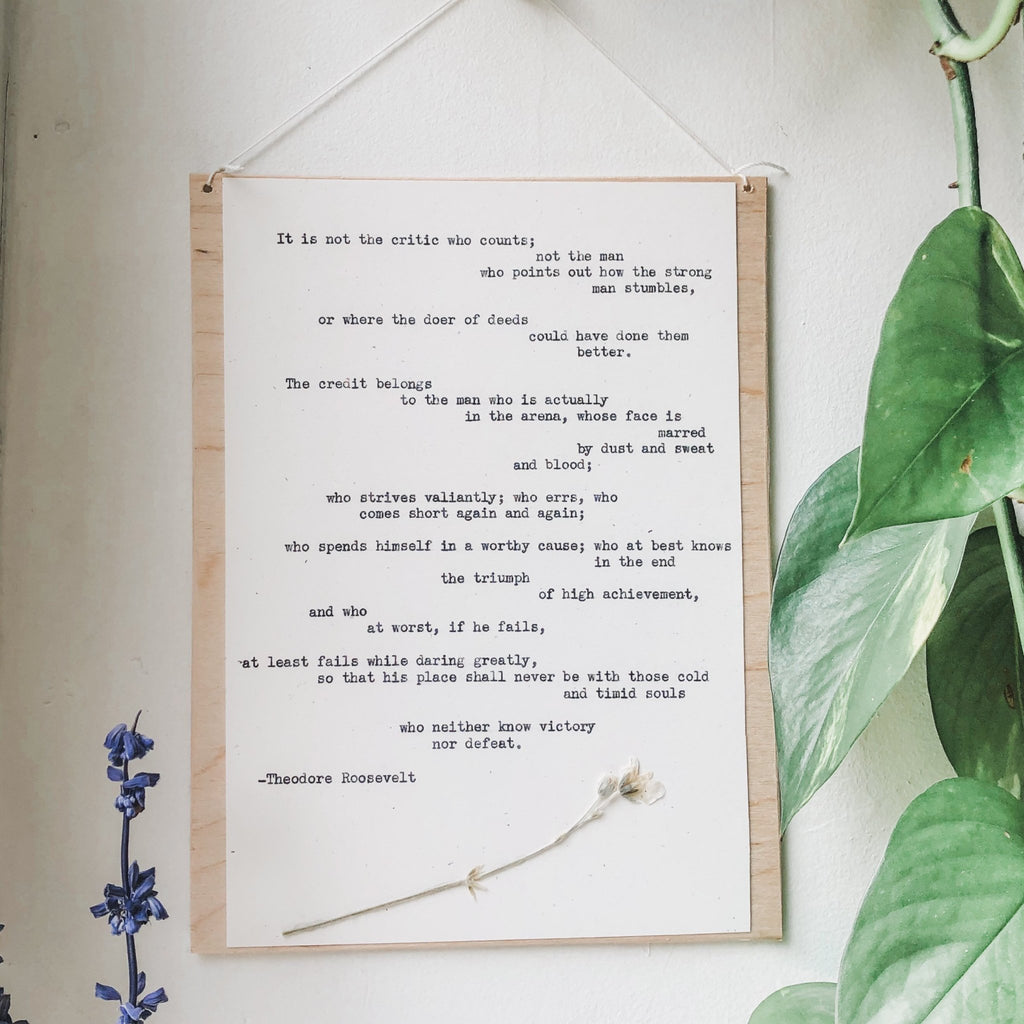 It is not the critic who counts;
not the man
who points out how the strong
man stumbles,
or where the doer of deeds
could have done them
better.
The credit belongs
to the man who is actually
in the arena, whose face is
marred
by dust and sweat
and blood;
who strives valiantly; who errs, who
comes short again and again;
who spends himself in a worthy cause; who at best knows
in the end
the triumph
of high achievement,
and who
at worst, if he fails,
at least fails while daring greatly,
so that his place shall never be with those cold
and timid souls
who neither know victory
nor defeat.
-Theodore Roosevelt